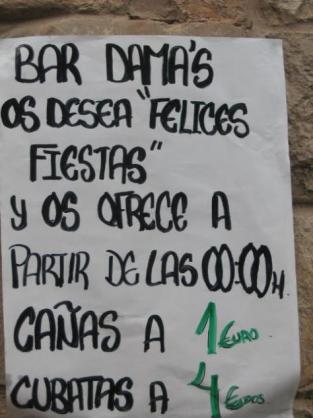 BAR DAMA'S
OS DESEA "FELICES
FIESTAS"
Y OS OFRECE A
PARTIR DE LAS 00:00H.
CAÑAS A 1 EURO
CUBATAS A 4 EUROS